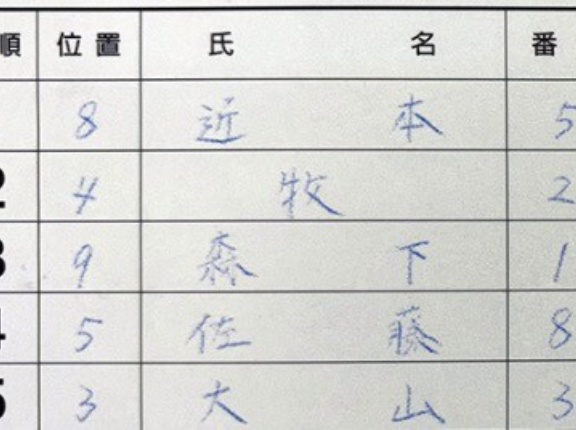 順 位置 氏 名 番
8 近 本 5
2 4 牧 2
3 9 森 下 1
4 5 佐 藤 8
5 3 大 山 3